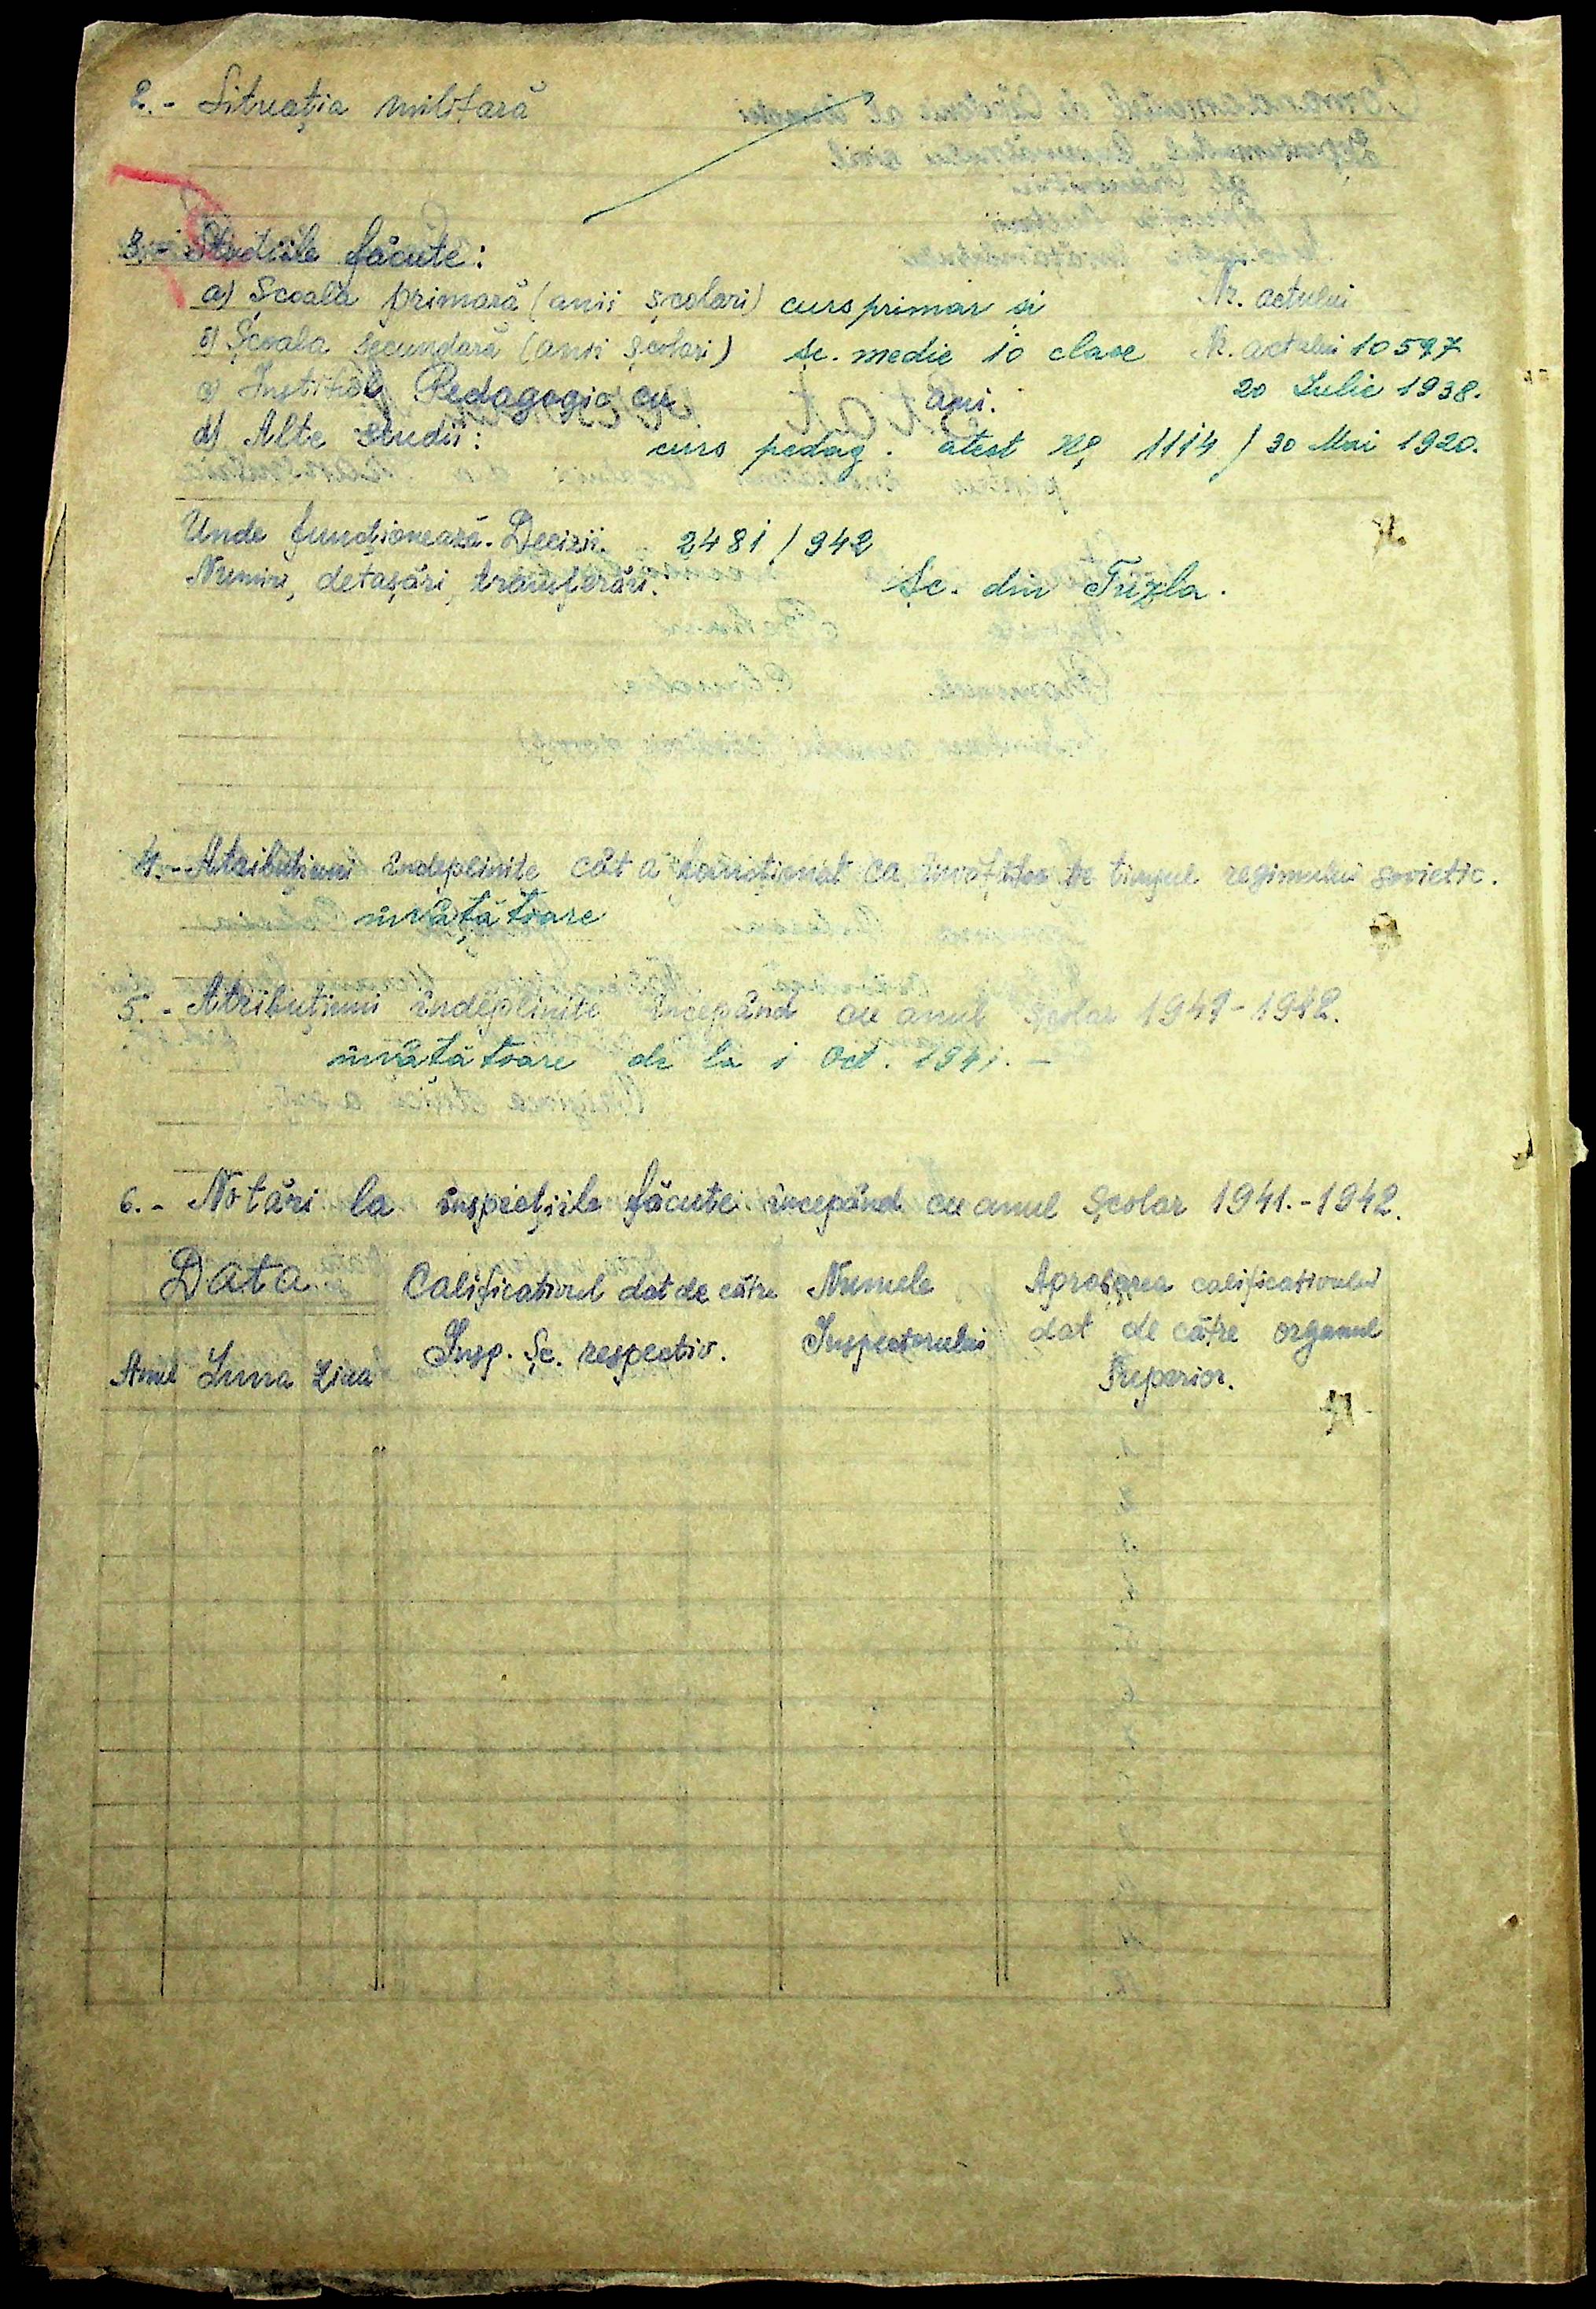 2.- Situația militară
3.- Studiile făcute:
a) Școala primară (anii școlari) curs primar și Nr. actului
b) Școala secundară (anii școlari) șc. medie 10 clase Nr. actului 10597
c) Institut Pedagogic cu ani. 20 Iulie 1938.
d) Alte studii: curs pedag. atest № 1114 / 30 Mai 1920.
Unde funcționează. Decizii. 2481 / 942
Numire, detașări, transferări. Șc. din
4.- Atribuțiuni îndeplinite cât a funcționat ca învățător pe timpul regimului sovietic.
învățătoare
5.- Atribuțiuni îndeplinite începând cu anul școlar 1941-1942.
învățătoare de la 1 Oct. 1941. -
6.- Notări la inspecțiile făcute începând cu anul școlar 1941.-1942.
Data Calificativul dat de către Numele Aprobarea calificativului
Insp. Șc. respectiv. Inspectorului dat de către organul
Anul Luna Ziua Superior.